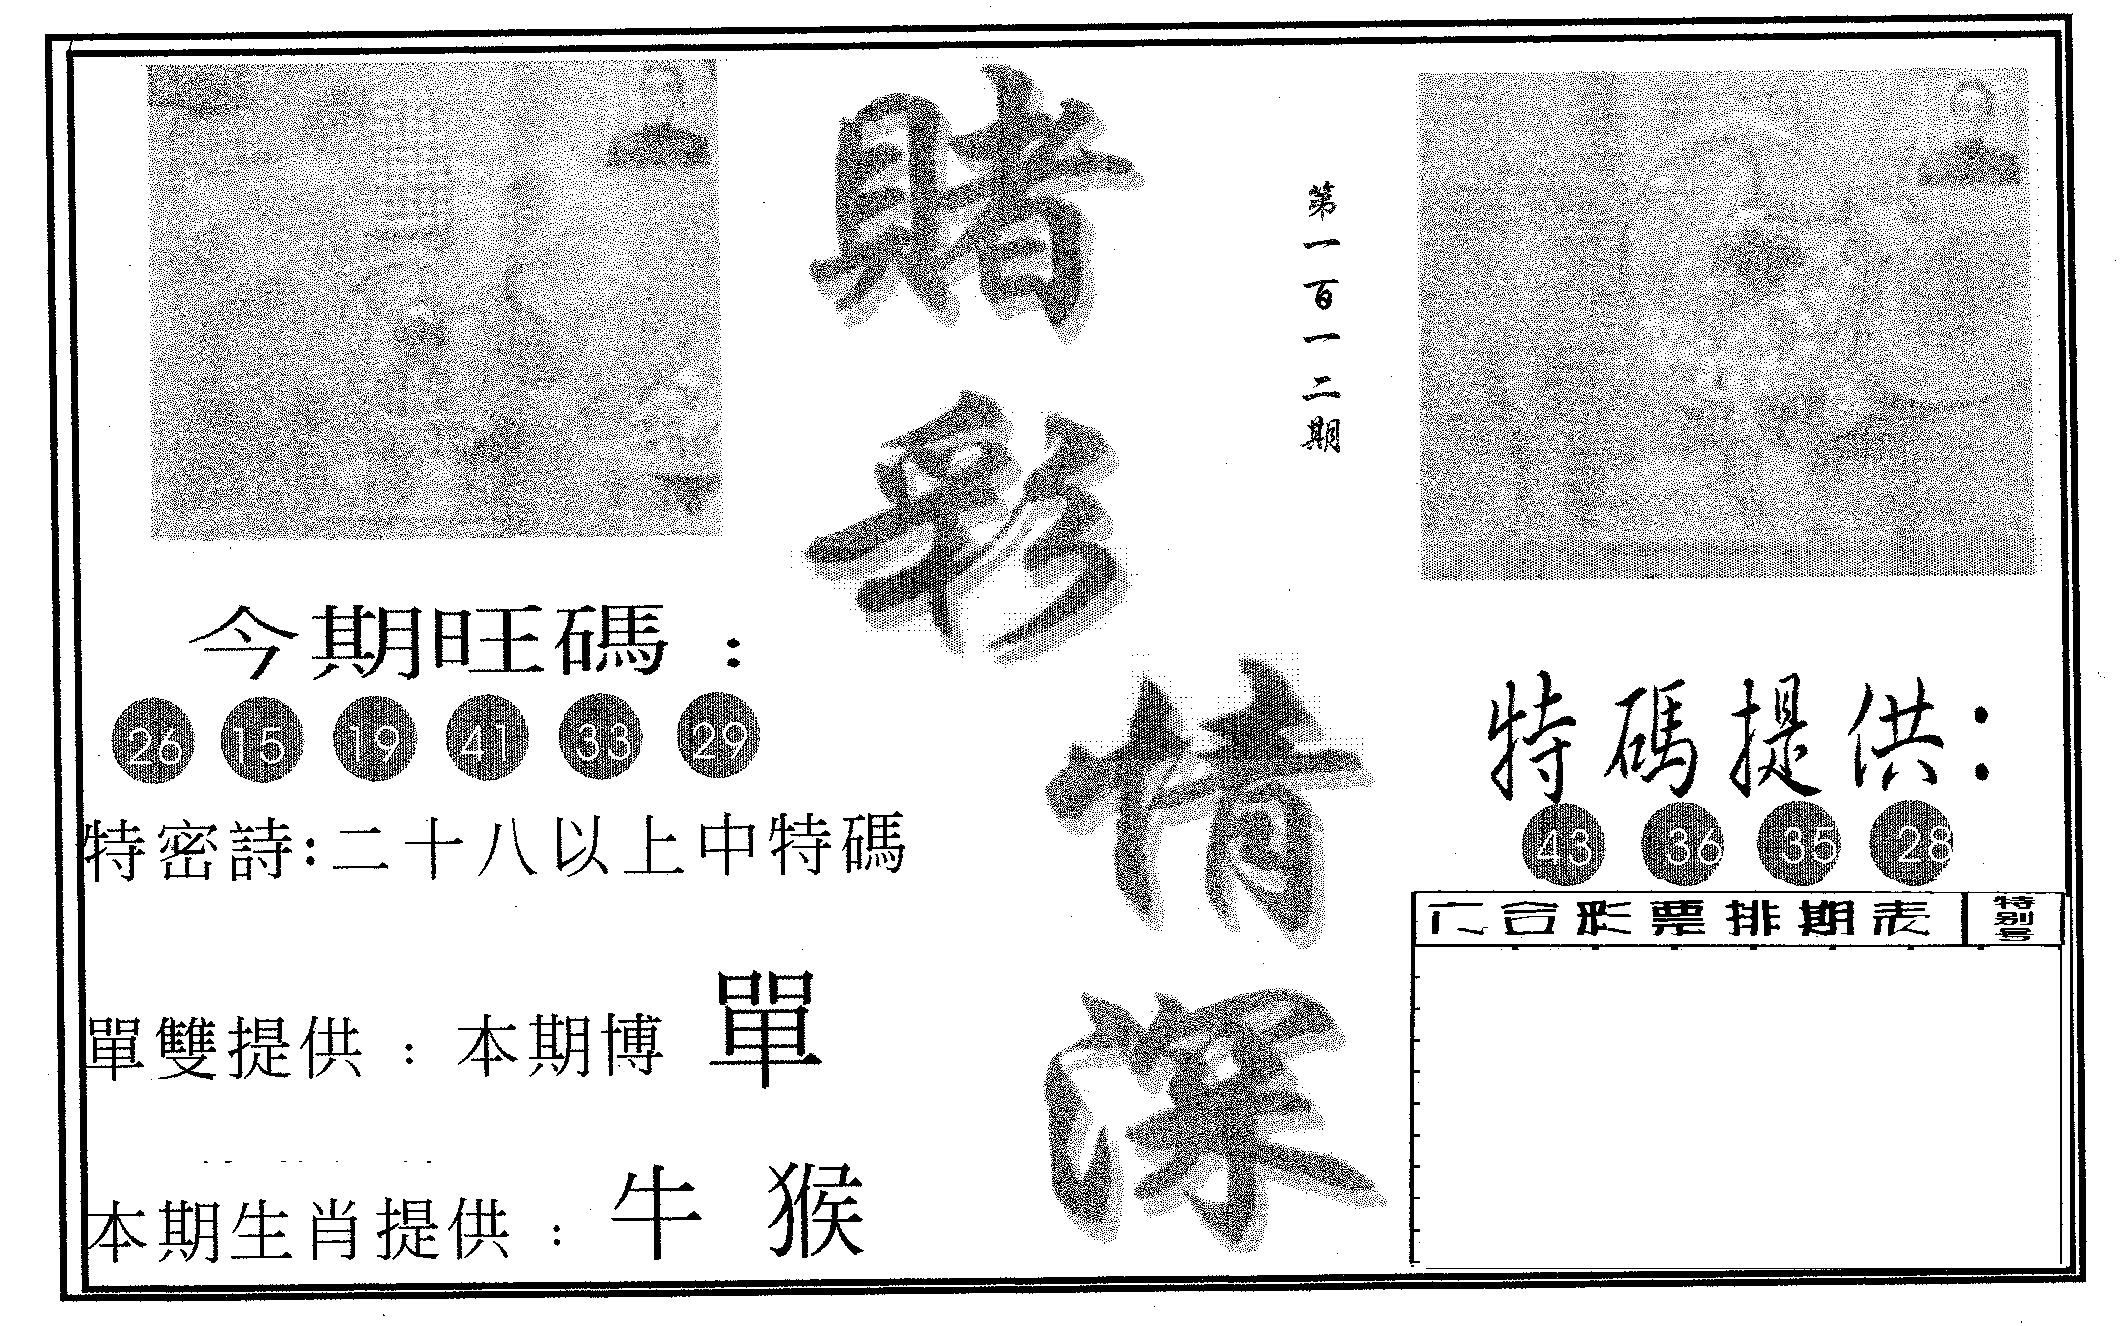 賭彩情深
第一百一十二期
今期旺碼：
26 15 19 41 33 29
特密詩:二十八以上中特碼
單雙提供：本期博 單
本期生肖提供：牛 猴
特碼提供：
43 36 35 28
六合彩票排期表 特别号